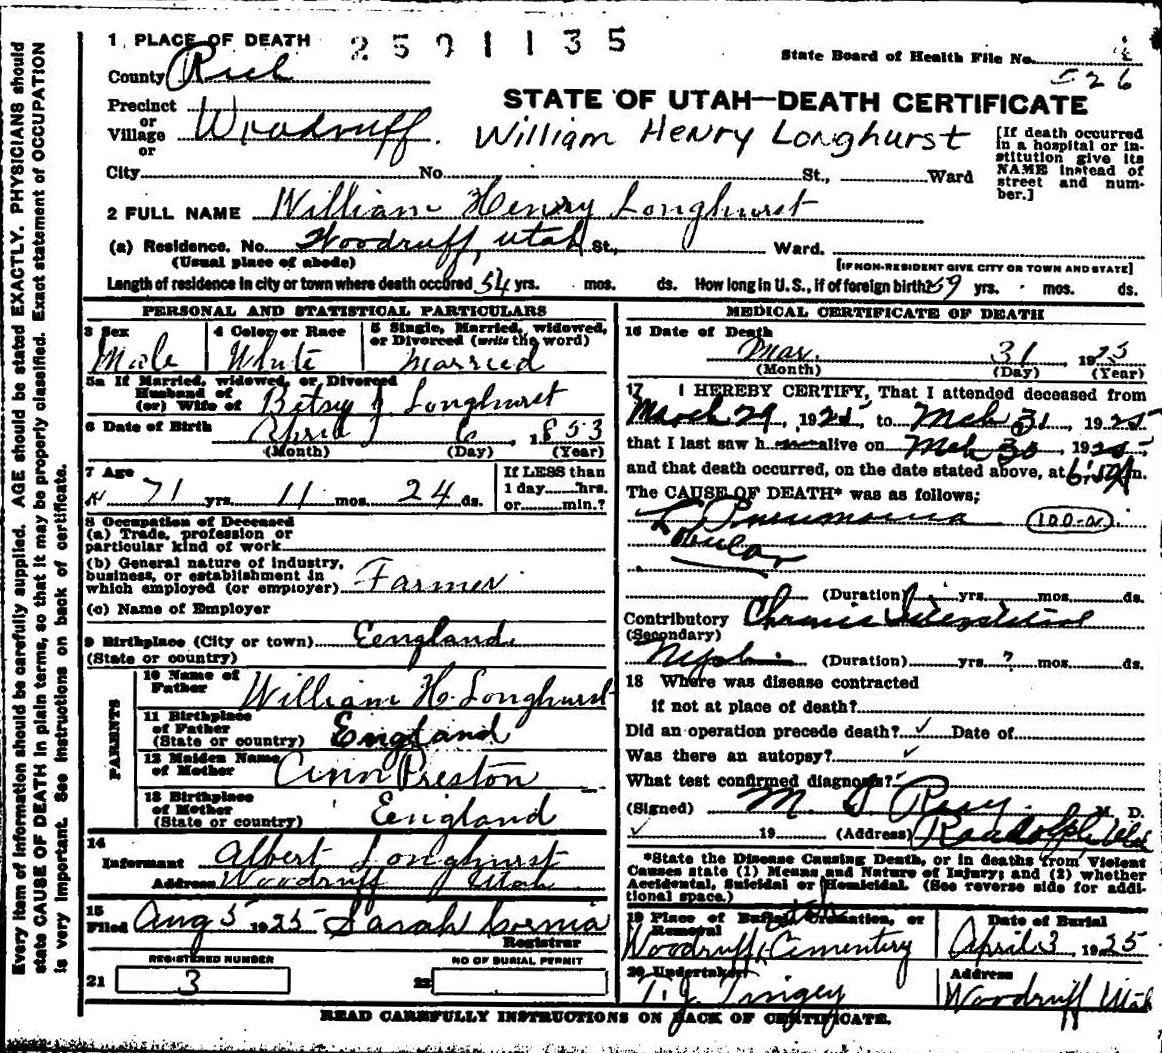 1 PLACE OF DEATH 2501135
State Board of Health File No.
County Rich
526
STATE OF UTAH—DEATH CERTIFICATE
Precinct or Village or Woodruff.
William Henry Longhurst
[If death occurred in a hospital or institution give its NAME instead of street and number.]
City No St., Ward
2 FULL NAME William Henry Longhurst
(a) Residence. No. Woodruff, Utah St., Ward.
(Usual place of abode) [IF NON-RESIDENT GIVE CITY OR TOWN AND STATE]
Length of residence in city or town where death occured 54 yrs. mos. ds. How long in U.S., if of foreign birth? 59 yrs. mos. ds.
PERSONAL AND STATISTICAL PARTICULARS
3 Sex 4 Color or Race 5 Single, Married, widowed, or Divorced (write the word)
Male White Married
5a If Married, widowed, or Divorced
Husband of
(or) Wife of Betsy J Longhurst
6 Date of Birth April 6 1853
(Month) (Day) (Year)
7 Age If LESS than
71 yrs. 11 mos. 24 ds. 1 day hrs.
or min.?
8 Occupation of Deceased
(a) Trade, profession or
particular kind of work
(b) General nature of industry,
business, or establishment in
which employed (or employer) Farmer
(c) Name of Employer
9 Birthplace (City or town) Eengland
(State or country)
PARENTS
10 Name of Father William H. Longhurst
11 Birthplace of Father (State or country) England
12 Maiden Name of Mother Ann Preston
13 Birthplace of Mother (State or country) England
14
Informant Albert Longhurst
Address Woodruff Utah
15 Filed Aug 5 1925 Sarah Cornia
Registrar
REGISTERED NUMBER NO OF BURIAL PERMIT
21 3 22
MEDICAL CERTIFICATE OF DEATH
16 Date of Death
Mar. 31 1925
(Month) (Day) (Year)
17 I HEREBY CERTIFY, That I attended deceased from
March 29, 1925 to Mch 31, 1925
that I last saw h alive on Mch 30 1925
and that death occurred, on the date stated above, at 6:50 A m.
The CAUSE OF DEATH* was as follows;
Pneumonia 100-a
Lobular
(Duration) yrs. mos. ds.
Contributory Chronic Interstitial
(Secondary)
Neph (Duration) yrs. ? mos. ds.
18 Where was disease contracted
if not at place of death?
Did an operation precede death? ✓ Date of
Was there an autopsy? ✓
What test confirmed diagnosis?
(Signed) M. D.
✓ 19 (Address) Randolph Utah
*State the Disease Causing Death, or in deaths from Violent
Causes state (1) Means and Nature of Injury; and (2) whether
Accidental, Suicidal or Homicidal. (See reverse side for additional space.)
19 Place of Burial, Cremation, or Removal Date of Burial
Woodruff, Cementery April 3, 1925
20 Undertaker Address
T. J. Tingey Woodruff Utah
READ CAREFULLY INSTRUCTIONS ON BACK OF CERTIFICATE.
Every item of information should be carefully supplied. AGE should be stated EXACTLY. PHYSICIANS should
state CAUSE OF DEATH in plain terms, so that it may be properly classified. Exact statement of OCCUPATION
is very important. See instructions on back of certificate.